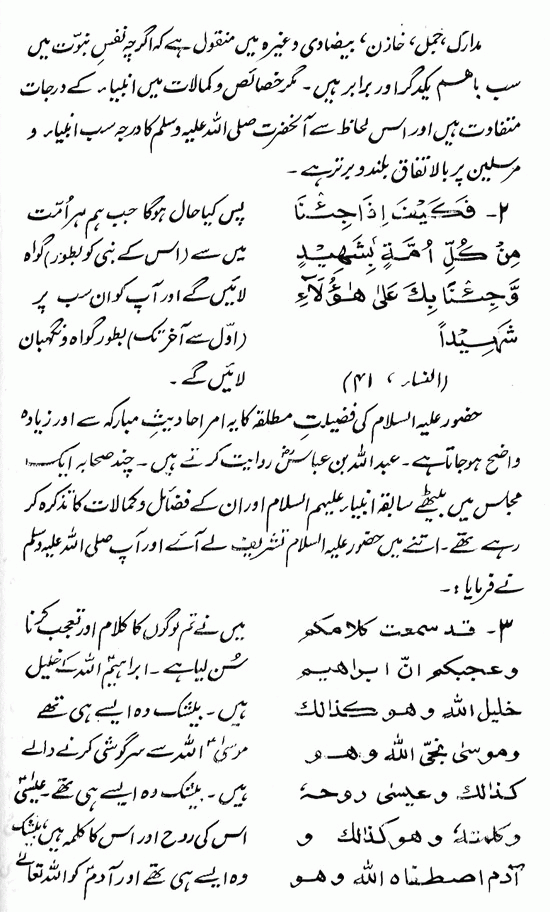 مدارک، جمل، خازن، بیضاوی وغیرہ میں منقول ہے کہ اگرچہ نفسِ نبوّت میں
سب باھم یکدگر اور برابر ہیں۔ مگر خصائص و کمالات میں انبیاء کے درجات
متفاوت ہیں اور اس لحاظ سے آنحضرت صلی اللہ علیہ وسلم کا درجہ سب انبیاء و
مرسلین پر بالاتفاق بلند و برتر ہے۔
۲- فَكَيْفَ اِذَا جِئْنَا
مِنْ كُلِّ اُمَّةٍ بِشَهِيْدٍ
وَّجِئْنَا بِكَ عَلٰى هٰؤُلَآءِ
شَهِيْداً
(النساء، ۴۱)
پس کیا حال ہوگا جب ہم ہر اُمّت
میں سے (اس کے نبی کو بطور) گواہ
لائیں گے اور آپ کو ان سب پر
(اوّل سے آخر تک) بطور گواہ و نگہبان
لائیں گے۔
حضور علیہ السلام کی فضیلتِ مطلقہ کا یہ امر احادیثِ مبارکہ سے اور زیادہ
واضح ہو جاتا ہے۔ عبداللہ بن عباسؓ روایت کرتے ہیں۔ چند صحابہ ایک
مجلس میں بیٹھے سابقہ انبیاء علیہم السلام اور ان کے فضائل و کمالات کا تذکرہ کر
رہے تھے۔ اتنے میں حضور علیہ السلام تشریف لے آئے اور آپ صلی اللہ علیہ وسلم
نے فرمایا:۔
۳- قد سمعت كلامكم
وعجبكم انّ ابراهيم
خليل الله وهو كذالك
وموسىٰ نجّى الله وهو
كذالك وعيسىٰ روحهٗ
وكلمتهٗ وهو كذالك و
آدم اصطفاه الله وهو
میں نے تم لوگوں کا کلام اور تعجب کرنا
سُن لیا ہے۔ ابراہیمؑ اللہ کے خلیل
ہیں۔ بیشک وہ ایسے ہی تھے
موسیٰؑ اللہ سے سرگوشی کرنے والے
ہیں۔ بیشک وہ ایسے ہی تھے۔ عیسیٰؑ
اس کی روح اور اس کا کلمہ ہیں، بیشک
وہ ایسے ہی تھے اور آدمؑ کو اللہ تعالےٰ